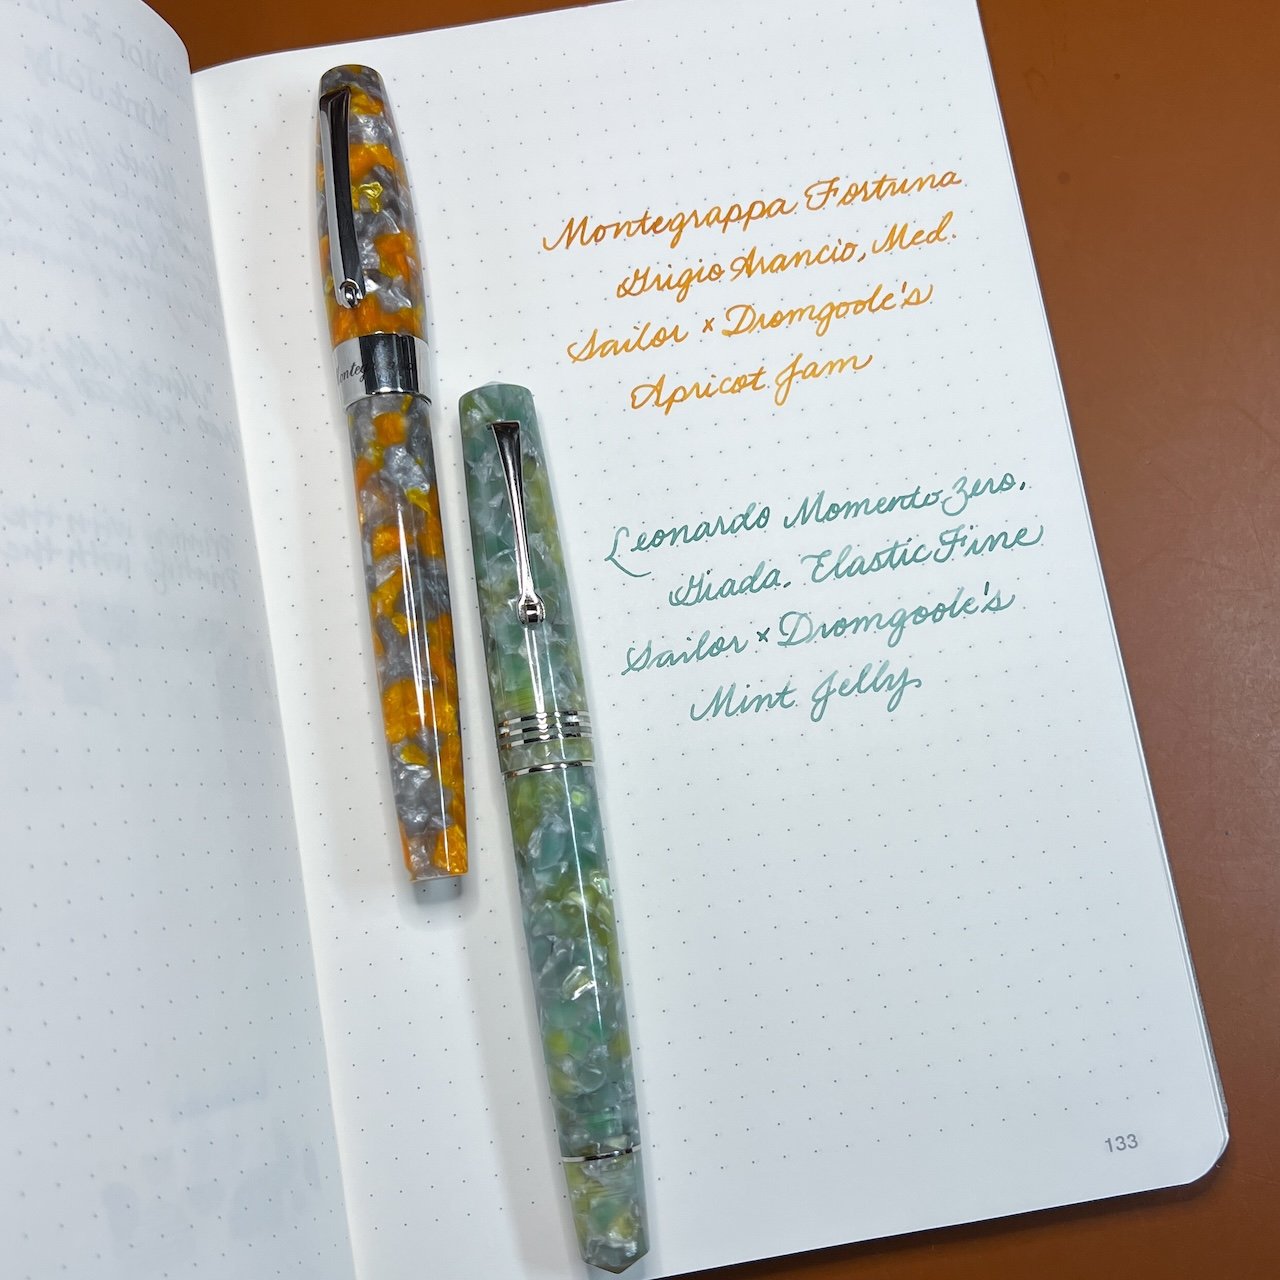 Montegrappa Fortuna
Grigio Arancio, Med.
Sailor × Dromgoole's
Apricot Jam
Leonardo Momento Zero,
Giada. Elastic Fine
Sailor × Dromgoole's
Mint Jelly
133